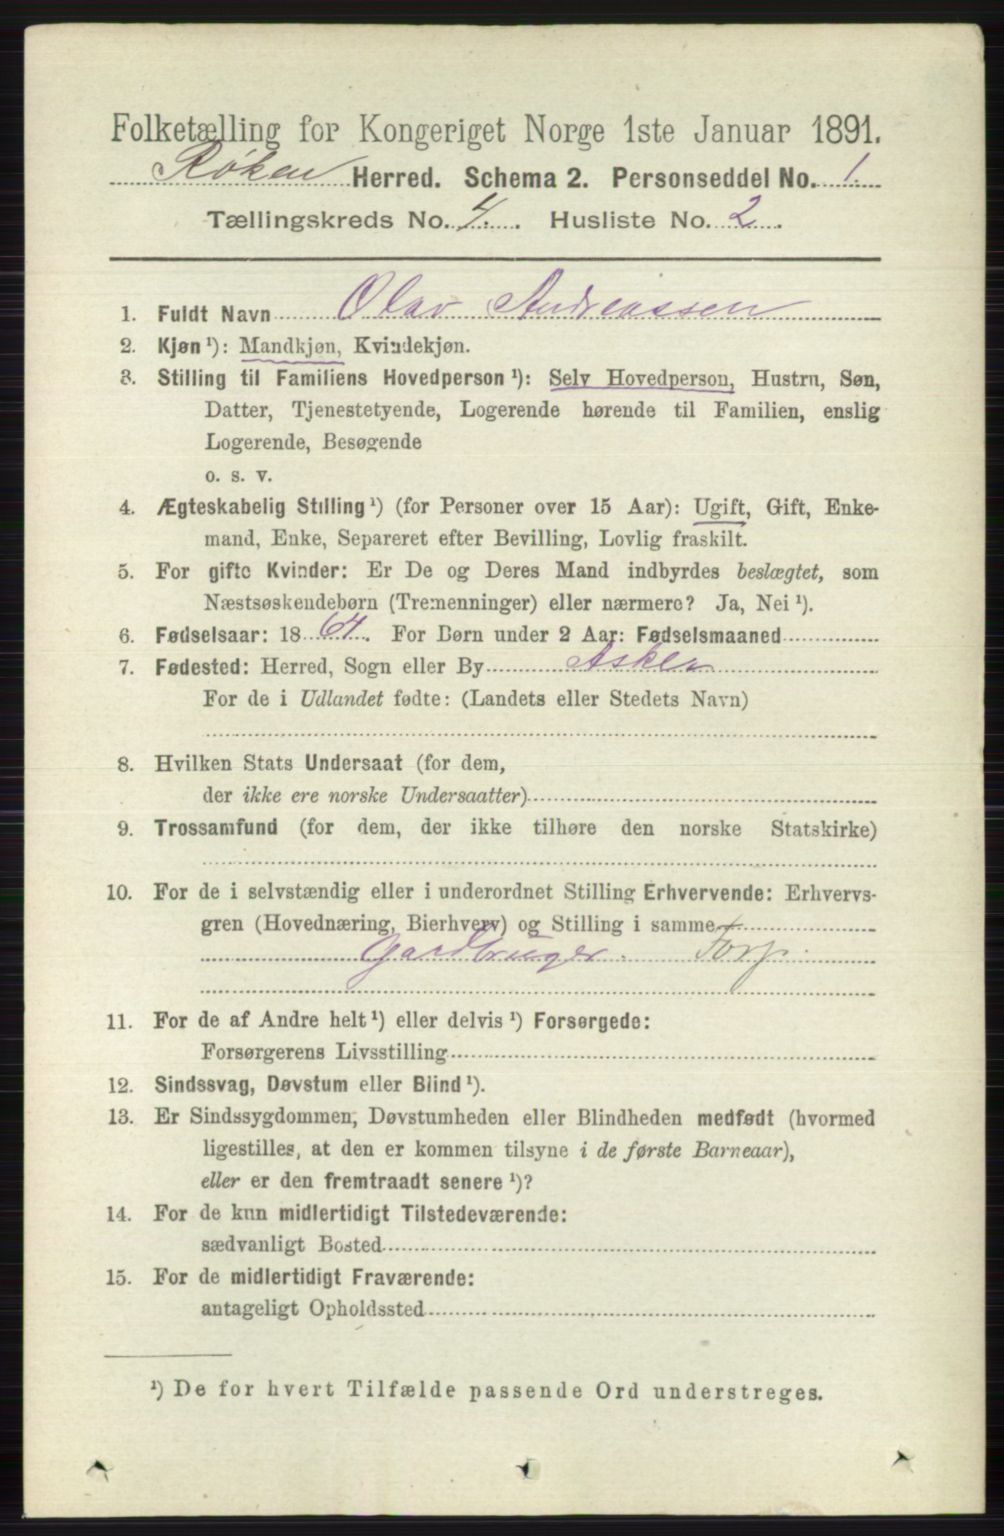 Folketælling for Kongeriget Norge 1ste Januar 1891.
Røken Herred. Schema 2. Personseddel No. 1.
Tællingskreds No. 4. Husliste No. 2.
1. Fuldt Navn Olav Andreassen
2. Kjøn¹): Mandkjøn, Kvindekjøn.
3. Stilling til Familiens Hovedperson¹): Selv Hovedperson, Hustru, Søn,
Datter, Tjenestetyende, Logerende hørende til Familien, enslig
Logerende, Besøgende
o. s. v.
4. Ægteskabelig Stilling¹) (for Personer over 15 Aar): Ugift, Gift, Enke-
mand, Enke, Separeret efter Bevilling, Lovlig fraskilt.
5. For gifte Kvinder: Er De og Deres Mand indbyrdes beslægtet, som
Næstsøskendebørn (Tremenninger) eller nærmere? Ja, Nei¹).
6. Fødselsaar: 1864. For Børn under 2 Aar: Fødselsmaaned
7. Fødested: Herred, Sogn eller By Asker
For de i Udlandet fødte: (Landets eller Stedets Navn)
8. Hvilken Stats Undersaat (for dem,
der ikke ere norske Undersaatter)
9. Trossamfund (for dem, der ikke tilhøre den norske Statskirke)
10. For de i selvstændig eller i underordnet Stilling Erhvervende: Erhvervs-
gren (Hovednæring, Bierhverv) og Stilling i samme
Gardbruger. Torp.
11. For de af Andre helt¹) eller delvis¹) Forsørgede:
Forsørgerens Livsstilling
12. Sindssvag, Døvstum eller Blind¹).
13. Er Sindssygdommen, Døvstumheden eller Blindheden medfødt (hvormed
ligestilles, at den er kommen tilsyne i de første Barneaar),
eller er den fremtraadt senere¹)?
14. For de kun midlertidigt Tilstedeværende:
sædvanligt Bosted
15. For de midlertidigt Fraværende:
antageligt Opholdssted
¹) De for hvert Tilfælde passende Ord understreges.